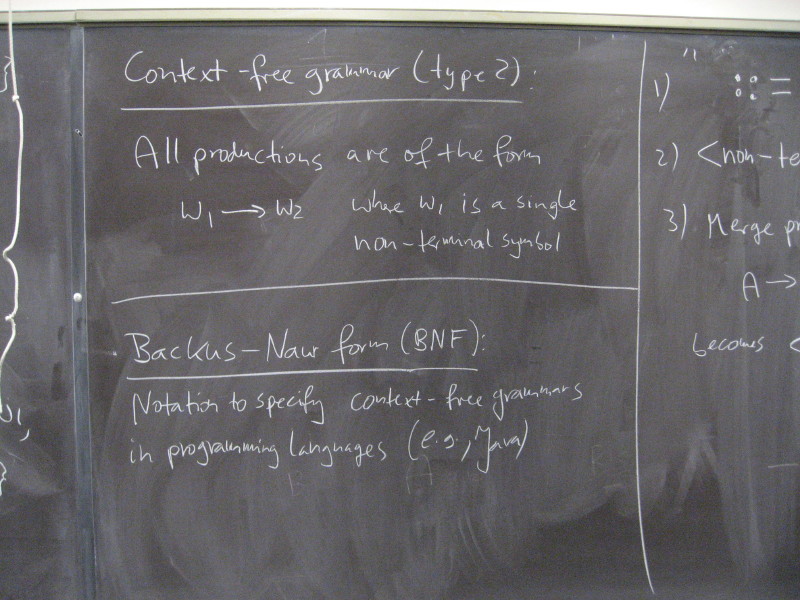 Context-free grammar (type 2):
All productions are of the form
W1 → W2 where W1 is a single
non-terminal symbol
Backus-Naur form (BNF):
Notation to specify context-free grammars
in programming languages (e.g., Java)
1) ::=
2) <non-te
3) Merge pr
A →
becomes <